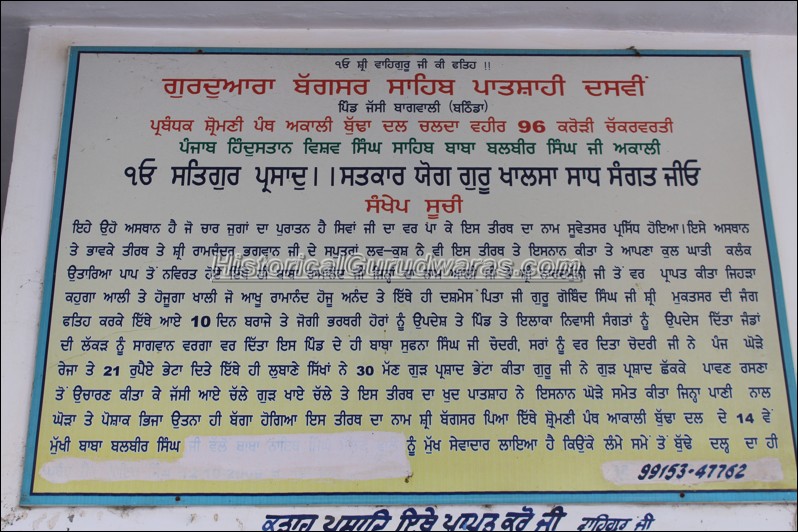 ੧ਓ ਸ਼੍ਰੀ ਵਾਹਿਗੁਰੂ ਜੀ ਕੀ ਫਤਿਹ !!
ਗੁਰਦੁਆਰਾ ਬੱਗਸਰ ਸਾਹਿਬ ਪਾਤਸ਼ਾਹੀ ਦਸਵੀਂ
ਪਿੰਡ ਜੱਸੀ ਬਾਗਵਾਲੀ (ਬਠਿੰਡਾ)
ਪ੍ਰਬੰਧਕ ਸ਼੍ਰੋਮਣੀ ਪੰਥ ਅਕਾਲੀ ਬੁੱਢਾ ਦਲ ਚਲਦਾ ਵਹੀਰ 96 ਕਰੋੜੀ ਚੱਕਰਵਰਤੀ
ਪੰਜਾਬ ਹਿੰਦੁਸਤਾਨ ਵਿਸ਼ਵ ਸਿੰਘ ਸਾਹਿਬ ਬਾਬਾ ਬਲਬੀਰ ਸਿੰਘ ਜੀ ਅਕਾਲੀ
੧ਓ ਸਤਿਗੁਰ ਪ੍ਰਸਾਦੁ।।ਸਤਕਾਰ ਯੋਗ ਗੁਰੂ ਖਾਲਸਾ ਸਾਧ ਸੰਗਤ ਜੀਓ
ਸੰਖੇਪ ਸੂਚੀ
ਇਹੇ ਉਹੋ ਅਸਥਾਨ ਹੈ ਜੋ ਚਾਰ ਜੁਗਾਂ ਦਾ ਪੁਰਾਤਨ ਹੈ ਸਿਵਾਂ ਜੀ ਦਾ ਵਰ ਪਾ ਕੇ ਇਸ ਤੀਰਥ ਦਾ ਨਾਮ ਸੂਵੇਤਸਰ ਪ੍ਰਸਿੱਧ ਹੋਇਆ।ਇਸੇ ਅਸਥਾਨ
ਤੇ ਭਾਵਕੇ ਤੀਰਥ ਤੇ ਸ਼੍ਰੀ ਰਾਮਚੰਦਰ ਭਗਵਾਨ ਜੀ ਦੇ ਸਪੁਤਰਾਂ ਲਵ-ਕੁਸ਼ ਨੇ ਵੀ ਇਸ ਤੀਰਥ ਤੇ ਇਸਨਾਨ ਕੀਤਾ ਤੇ ਆਪਣਾ ਕੁਲ ਘਾਤੀ ਕਲੰਕ
ਉਤਾਰਿਆ ਪਾਪ ਤੋਂ ਨਵਿਰਤ ਹੋਏ ਜੀ ਤੋਂ ਵਰ ਪ੍ਰਾਪਤ ਕੀਤਾ ਜਿਹੜਾ
HistoricalGurudwaras.com
ਕਹੁਗਾ ਆਲੀ ਤੇ ਹੋਜੂਗਾ ਖਾਲੀ ਜੋ ਆਖੂ ਰਾਮਾਨੰਦ ਹੋਜੂ ਅਨੰਦ ਤੇ ਇੱਥੇ ਹੀ ਦਸ਼ਮੇਸ ਪਿਤਾ ਜੀ ਗੁਰੂ ਗੋਬਿੰਦ ਸਿੰਘ ਜੀ ਸ਼੍ਰੀ ਮੁਕਤਸਰ ਦੀ ਜੰਗ
ਫਤਿਹ ਕਰਕੇ ਇੱਥੇ ਆਏ 10 ਦਿਨ ਬਰਾਜੇ ਤੇ ਜੋਗੀ ਭਰਥਰੀ ਹੋਰਾਂ ਨੂੰ ਉਪਦੇਸ਼ ਤੇ ਪਿੰਡ ਤੇ ਇਲਾਕਾ ਨਿਵਾਸੀ ਸੰਗਤਾਂ ਨੂੰ ਉਪਦੇਸ ਦਿੱਤਾ ਜੰਡਾਂ
ਦੀ ਲੱਕੜ ਨੂੰ ਸਾਗਵਾਨ ਵਰਗਾ ਵਰ ਦਿੱਤਾ ਇਸ ਪਿੰਡ ਦੇ ਹੀ ਬਾਬਾ ਸੁਫਨਾ ਸਿੰਘ ਜੀ ਚੋਦਰੀ, ਸਰਾਂ ਨੂੰ ਵਰ ਦਿਤਾ ਚੋਦਰੀ ਜੀ ਨੇ ਪੰਜ ਘੋੜੇ
ਰੇਜਾ ਤੇ 21 ਰੁਪੈਏ ਭੇਟਾ ਦਿਤੇ ਇੱਥੇ ਹੀ ਲੁਬਾਣੇ ਸਿੱਖਾਂ ਨੇ 30 ਮੱਣ ਗੁੜ ਪ੍ਰਸ਼ਾਦ ਭੇਂਟਾ ਕੀਤਾ ਗੁਰੂ ਜੀ ਨੇ ਗੁੜ ਪ੍ਰਸ਼ਾਦ ਛੱਕਕੇ ਪਾਵਣ ਰਸਣਾ
ਤੋਂ ਉਚਾਰਣ ਕੀਤਾ ਕੇ ਜੱਸੀ ਆਏ ਚੱਲੇ ਗੁੜ ਖਾਏ ਚੱਲੇ ਤੇ ਇਸ ਤੀਰਥ ਦਾ ਖੁਦ ਪਾਤਸ਼ਾਹ ਨੇ ਇਸਨਾਨ ਘੋੜੇ ਸਮੇਤ ਕੀਤਾ ਜਿਨ੍ਹਾ ਪਾਣੀ ਨਾਲ
ਘੋੜਾ ਤੇ ਪੋਸ਼ਾਕ ਭਿਜਾ ਉਤਨਾ ਹੀ ਬੱਗਾ ਹੋਗਿਆ ਇਸ ਤੀਰਥ ਦਾ ਨਾਮ ਸ਼੍ਰੀ ਬੱਗਸਰ ਪਿਆ ਇੱਥੇ ਸ਼੍ਰੋਮਣੀ ਪੰਥ ਆਕਾਲੀ ਬੁੱਢਾ ਦਲ ਦੇ 14 ਵੇਂ
ਮੁੱਖੀ ਬਾਬਾ ਬਲਬੀਰ ਸਿੰਘ ਨੂੰ ਮੁੱਖ ਸੇਵਾਦਾਰ ਲਾਇਆ ਹੈ ਕਿਉਂਕੇ ਲੰਮੇ ਸਮੇਂ ਤੋਂ ਬੁੱਢੇ ਦਲ੍ਹ ਦਾ ਹੀ
99153-47762
ਕੜਾਹ ਪ੍ਰਸ਼ਾਦਿ ਇਥੇ ਪ੍ਰਾਪਤ ਕਰੋ ਜੀ ਵਾਹਿਗੁਰੂ ਜੀ